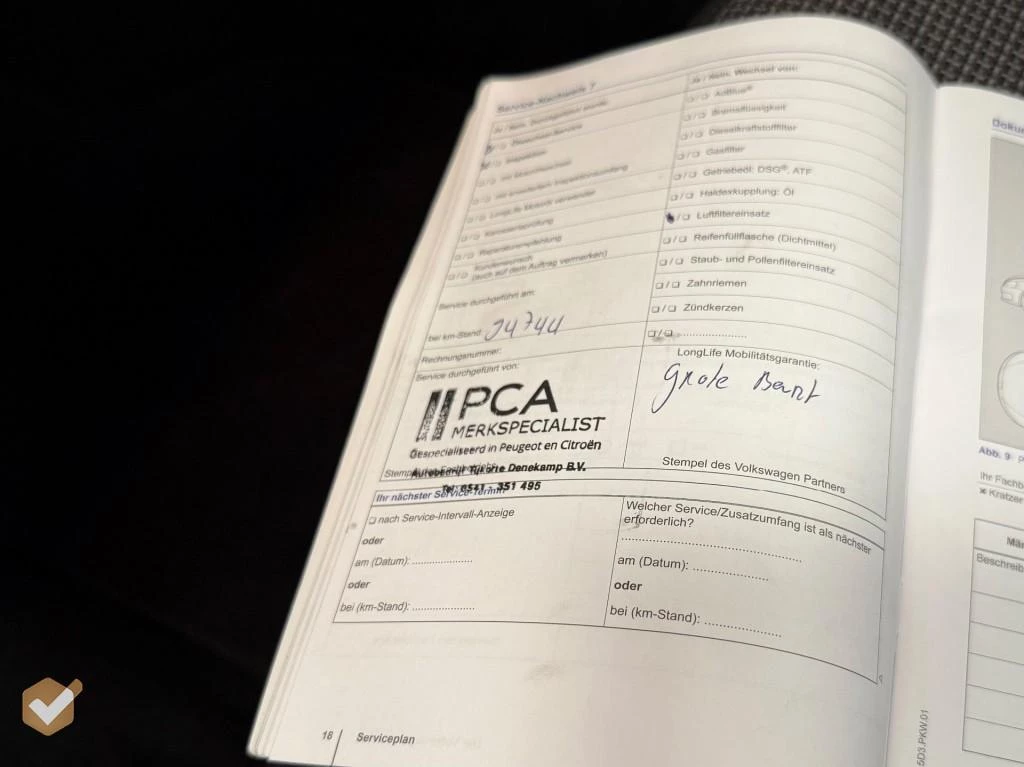 Service-Nachweis 7
Ja / Nein, Durchgeführt wurde:
❏/❏ Ölwechsel-Service
❏/❏ Inspektion
❏/❏ mit
❏/❏ mit erweitertem Inspektionsumfang
❏/❏ LongLife Motoröl verwendet
❏/❏ Karosserieprüfung
❏/❏ Reparaturempfehlung
❏/❏ Kundenwunsch
(auch auf dem Auftrag vermerken)
Service durchgeführt am:
bei km-Stand:
Rechnungsnummer:
Service durchgeführt von:
PCA
MERKSPECIALIST
Gespecialiseerd in Peugeot en Citroën
Denekamp B.V.
Tel. 0541 - 351 495
Ja / Nein, Wechsel von:
❏/❏ AdBlue®
❏/❏ Bremsflüssigkeit
❏/❏ Dieselkraftstofffilter
❏/❏ Gasfilter
❏/❏ Getriebeöl: DSG®, ATF
❏/❏ Haldexkupplung: Öl
❏/❏ Luftfiltereinsatz
❏/❏ Reifenfüllflasche (Dichtmittel)
❏/❏ Staub- und Pollenfiltereinsatz
❏/❏ Zahnriemen
❏/❏ Zündkerzen
❏/❏ ....................
LongLife Mobilitätsgarantie:
Grote Beurt
Stempel des Volkswagen Partners
Ihr nächster Service-Termin
❏ nach Service-Intervall-Anzeige
oder
am (Datum): ..................
oder
bei (km-Stand): ..................
Welcher Service/Zusatzumfang ist als nächster
erforderlich?
..................................................
am (Datum): .....................
oder
bei (km-Stand): .....................
18 Serviceplan
5D3.PKW.01
Abb. 9
Ihr Fachb
Kratzer
Beschreib